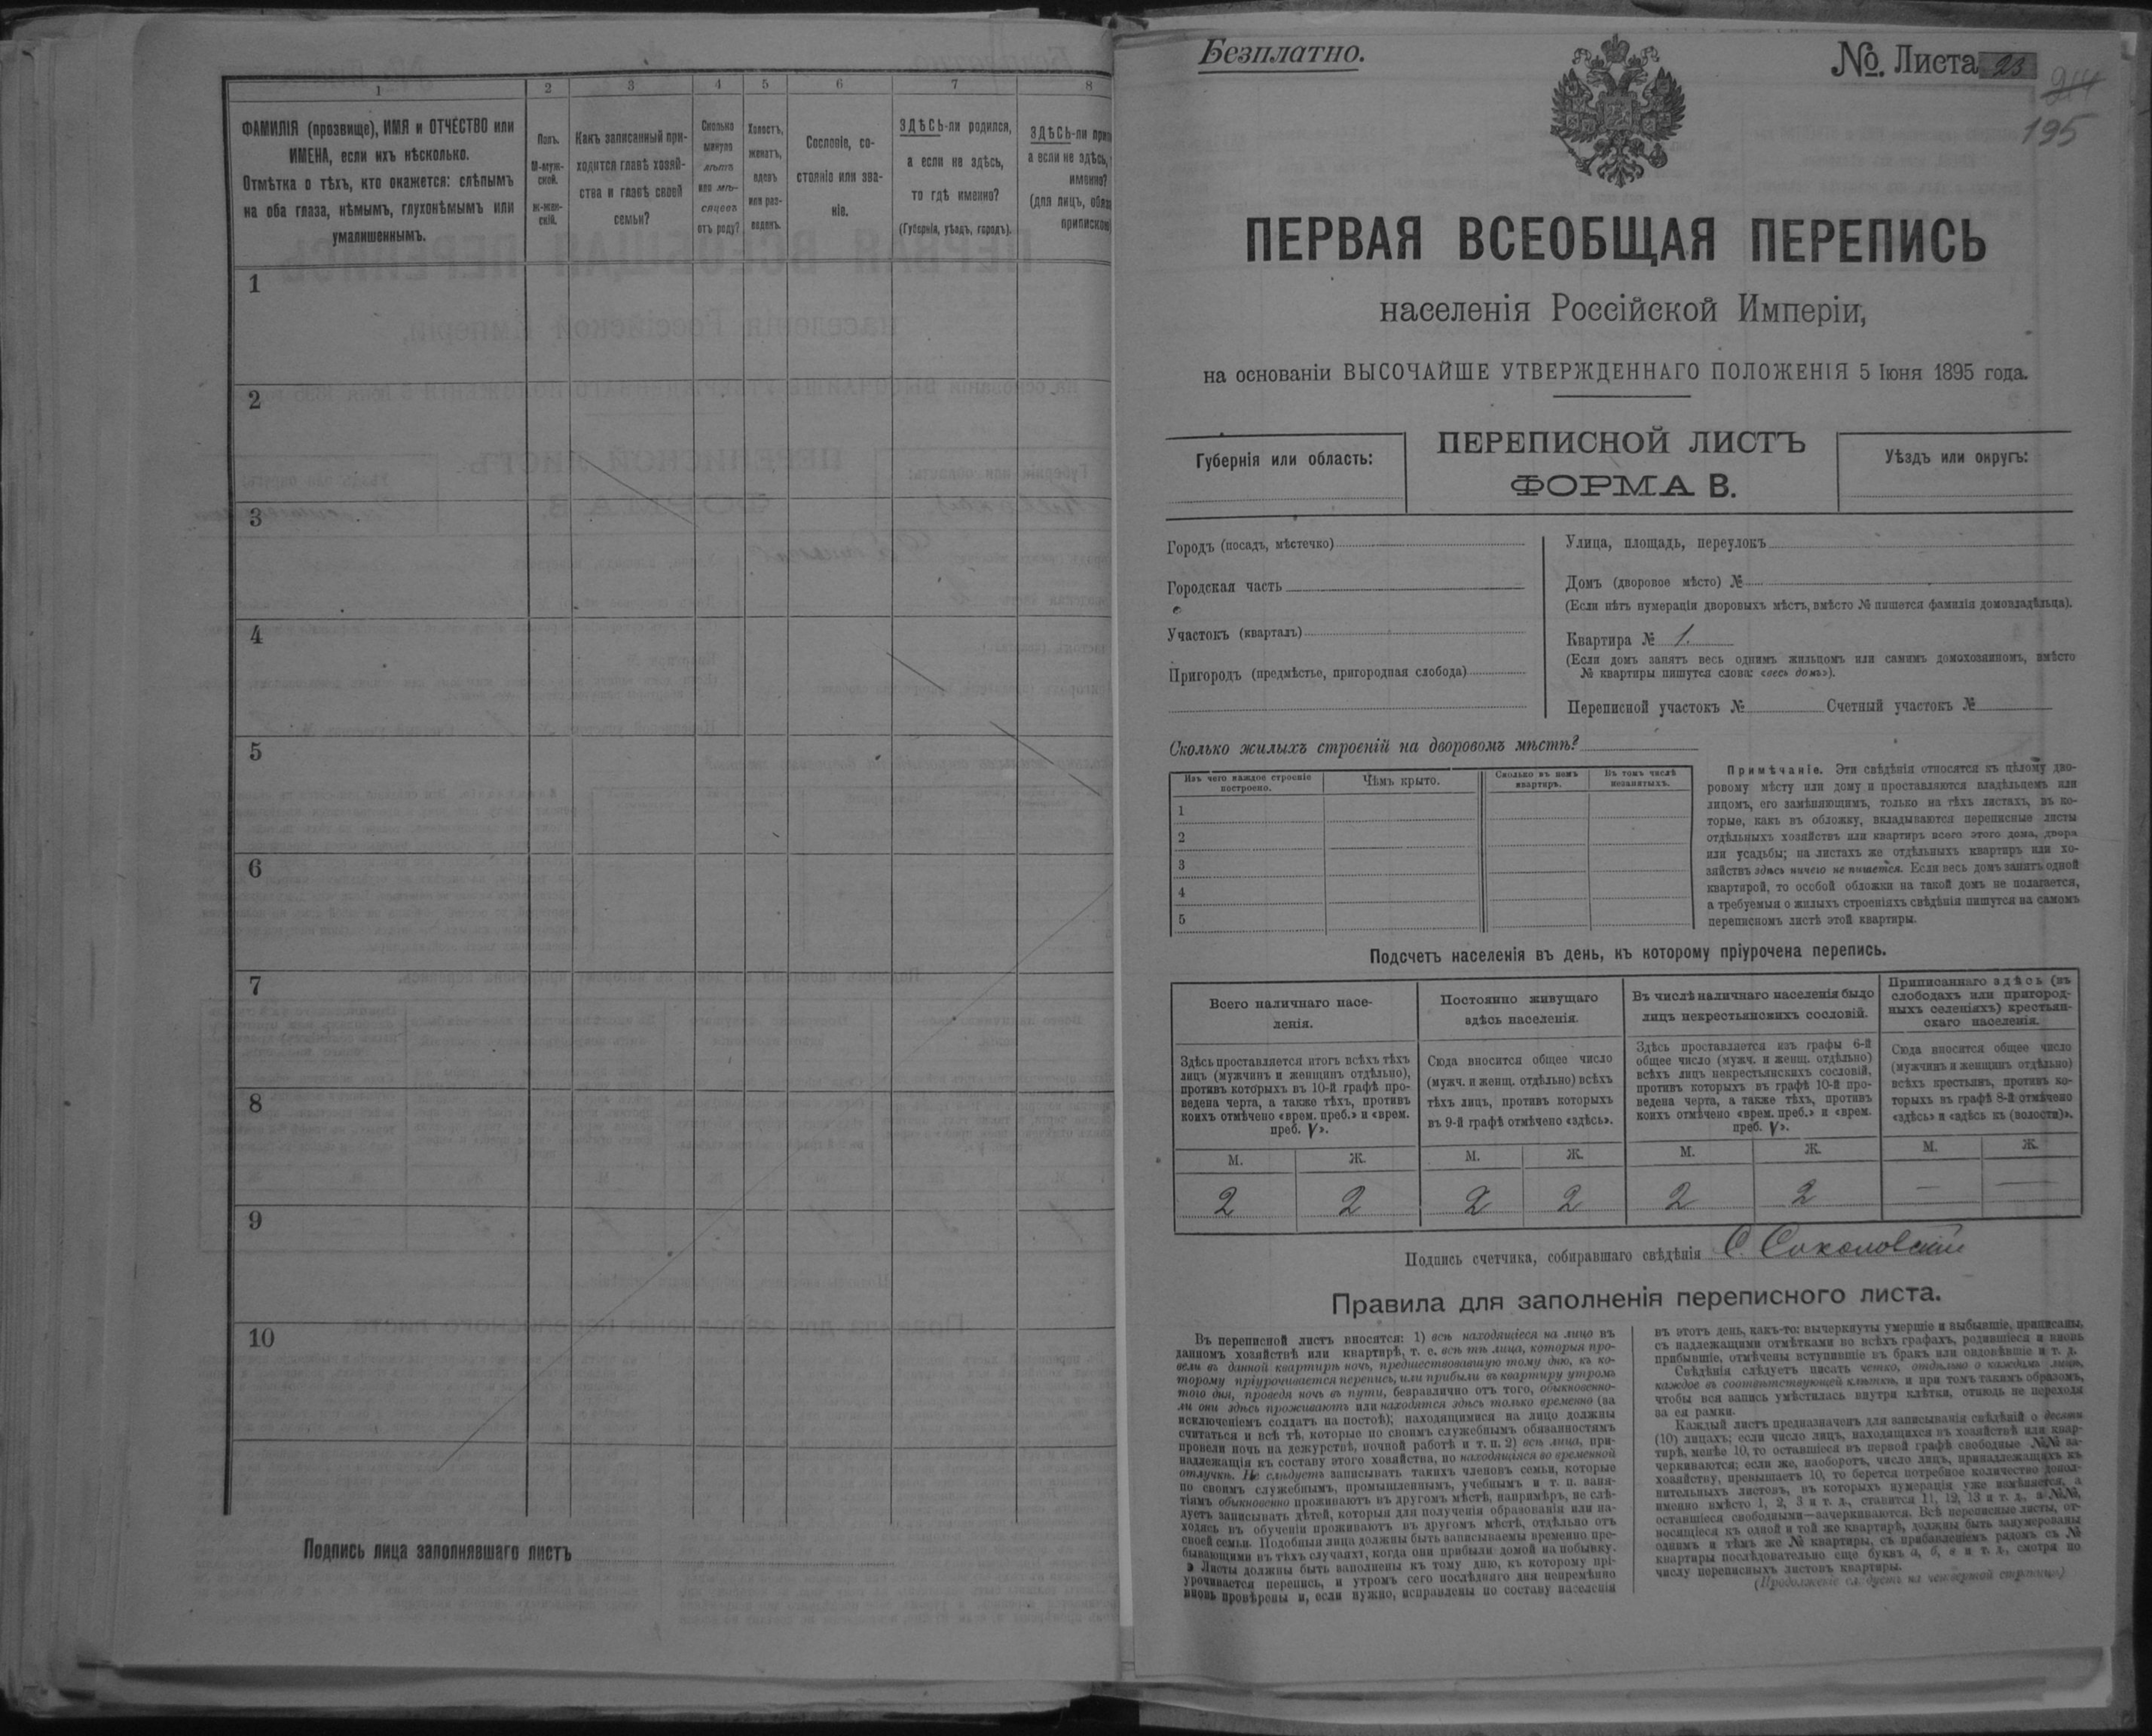 1 2 3 4 5 6 7 8
ФАМИЛІЯ (прозвище), ИМЯ и ОТЧЕСТВО или
ИМЕНА, если ихъ нѣсколько.
Отмѣтка о тѣхъ, кто окажется: слѣпымъ
на оба глаза, нѣмымъ, глухонѣмымъ или
умалишеннымъ.
Полъ.
М-муж-
ской.
ж-жен-
скій.
Какъ записанный при-
ходится главѣ хозяй-
ства и главѣ своей
семьи?
Сколько
минуло
лѣтъ
или мѣ-
сяцевъ
отъ роду?
Холостъ,
женатъ,
вдовъ
или раз-
веденъ.
Сословіе, со-
стояніе или зва-
ніе.
ЗДѢСЬ-ли родился,
а если не здѣсь,
то гдѣ именно?
(Губернія, уѣздъ, городъ).
ЗДѢСЬ-ли
а если не здѣсь,
именно?
(для лицъ,
1
2
3
4
5
6
7
8
9
10
Подпись лица заполнявшаго листъ
Безплатно.
№. Листа 23
214
195
ПЕРВАЯ ВСЕОБЩАЯ ПЕРЕПИСЬ
населенія Россійской Имперіи,
на основаніи ВЫСОЧАЙШЕ УТВЕРЖДЕННАГО ПОЛОЖЕНІЯ 5 Іюня 1895 года.
Губернія или область:
ПЕРЕПИСНОЙ ЛИСТЪ
ФОРМА В.
Уѣздъ или округъ:
Городъ (посадъ, мѣстечко)
Городская часть
Участокъ (кварталъ)
Пригородъ (предмѣстье, пригородная слобода)
Улица, площадь, переулокъ
Домъ (дворовое мѣсто) №
(Если нѣтъ нумераціи дворовыхъ мѣстъ, вмѣсто № пишется фамилія домовладѣльца).
Квартира № 1.
(Если домъ занятъ весь однимъ жильцомъ или самимъ домохозяиномъ, вмѣсто
№ квартиры пишутся слова: «весь домъ»).
Переписной участокъ № Счетный участокъ №
Сколько жилыхъ строеній на дворовомъ мѣстѣ?
Изъ чего каждое строеніе
построено.
Чѣмъ крыто.
Сколько въ немъ
квартиръ.
Въ томъ числѣ
незанятыхъ.
1
2
3
4
5
Примѣчаніе. Эти свѣдѣнія относятся къ цѣлому дво-
ровому мѣсту или дому и проставляются владѣльцемъ или
лицомъ, его замѣняющимъ, только на тѣхъ листахъ, въ ко-
торые, какъ въ обложку, вкладываются переписные листы
отдѣльныхъ хозяйствъ или квартиръ всего этого дома, двора
или усадьбы; на листахъ же отдѣльныхъ квартиръ или хо-
зяйствъ здѣсь ничего не пишется. Если весь домъ занятъ одной
квартирой, то особой обложки на такой домъ не полагается,
а требуемыя о жилыхъ строеніяхъ свѣдѣнія пишутся на самомъ
переписномъ листѣ этой квартиры.
Подсчетъ населенія въ день, къ которому пріурочена перепись.
Всего наличнаго насе-
ленія.
Постоянно живущаго
здѣсь населенія.
Въ числѣ наличнаго населенія было
лицъ некрестьянскихъ сословій.
Приписаннаго здѣсь (въ
слободахъ или пригород-
ныхъ селеніяхъ) крестьян-
скаго населенія.
Здѣсь проставляется итогъ всѣхъ тѣхъ
лицъ (мужчинъ и женщинъ отдѣльно),
противъ которыхъ въ 10-й графѣ про-
ведена черта, а также тѣхъ, противъ
коихъ отмѣчено «врем. преб.» и «врем.
преб. V».
Сюда вносится общее число
(мужч. и женщ. отдѣльно) всѣхъ
тѣхъ лицъ, противъ которыхъ
въ 9-й графѣ отмѣчено «здѣсь».
Здѣсь проставляется изъ графы 6-й
общее число (мужч. и женщ. отдѣльно)
всѣхъ лицъ некрестьянскихъ сословій,
противъ которыхъ въ графѣ 10-й про-
ведена черта, а также тѣхъ, противъ
коихъ отмѣчено «врем. преб.» и «врем.
преб. V».
Сюда вносится общее число
(мужчинъ и женщинъ отдѣльно)
всѣхъ крестьянъ, противъ ко-
торыхъ въ графѣ 8-й отмѣчено
«здѣсь» и «здѣсь къ (волости)».
М. Ж. М. Ж. М. Ж. М. Ж.
2 2 2 2 2 2 — —
Подпись счетчика, собиравшаго свѣдѣнія С. Соколовскій
Правила для заполненія переписного листа.
Въ переписной листъ вносятся: 1) всѣ находящіеся на лицо въ
данномъ хозяйствѣ или квартирѣ, т. е. всѣ тѣ лица, которыя про-
вели въ данной квартирѣ ночь, предшествовавшую тому дню, къ ко-
торому пріурочивается перепись, или прибыли въ квартиру утромъ
того дня, проведя ночь въ пути, безразлично отъ того, обыкновенно-
ли они здѣсь проживаютъ или находятся здѣсь только временно (за
исключеніемъ солдатъ на постоѣ); находящимися на лицо должны
считаться и всѣ тѣ, которые по своимъ служебнымъ обязанностямъ
провели ночь на дежурствѣ, ночной работѣ и т. п. 2) всѣ лица, при-
надлежащія къ составу этого хозяйства, но находящіяся во временной
отлучкѣ. Не слѣдуетъ записывать такихъ членовъ семьи, которые
по своимъ служебнымъ, промышленнымъ, учебнымъ и т. п. заня-
тіямъ обыкновенно проживаютъ въ другомъ мѣстѣ, напримѣръ, не слѣ-
дуетъ записывать дѣтей, которыя для полученія образованія или на-
ходясь въ обученіи проживаютъ въ другомъ мѣстѣ, отдѣльно отъ
своей семьи. Подобныя лица должны быть записываемы временно пре-
бывающими въ тѣхъ случаяхъ, когда они прибыли домой на побывку.
Листы должны быть заполнены къ тому дню, къ которому прі-
урочивается перепись, и утромъ сего послѣдняго дня непремѣнно
вновь провѣрены и, если нужно, исправлены по составу населенія
въ этотъ день, какъ-то: вычеркнуты умершіе и выбывшіе, приписаны,
съ надлежащими отмѣтками во всѣхъ графахъ, родившіеся и вновь
прибывшіе, отмѣчены вступившіе въ бракъ или овдовѣвшіе и т. д.
Свѣдѣнія слѣдуетъ писать четко, отдѣльно о каждомъ лицѣ,
каждое въ соотвѣтствующей клѣткѣ, и при томъ такимъ образомъ,
чтобы вся запись умѣстилась внутри клѣтки, отнюдь не переходя
за ея рамки.
Каждый листъ предназначенъ для записыванія свѣдѣній о десяти
(10) лицахъ; если число лицъ, находящихся въ хозяйствѣ или квар-
тирѣ, менѣе 10, то оставшіеся въ первой графѣ свободные №№ за-
черкиваются; если же, наоборотъ, число лицъ, принадлежащихъ къ
хозяйству, превышаетъ 10, то берется потребное количество допол-
нительныхъ листовъ, въ которыхъ нумерація уже измѣняется, а
именно вмѣсто 1, 2, 3 и т. д., ставится 11, 12, 13 и т. д., а №№,
оставшіеся свободными—зачеркиваются. Всѣ переписные листы, от-
носящіеся къ одной и той же квартирѣ, должны быть занумерованы
однимъ и тѣмъ же № квартиры, съ прибавленіемъ рядомъ съ №
квартиры послѣдовательно еще буквъ а, б, в и т. д., смотря по
числу переписныхъ листовъ квартиры.
(Продолженіе слѣдуетъ на четвертой страницѣ)